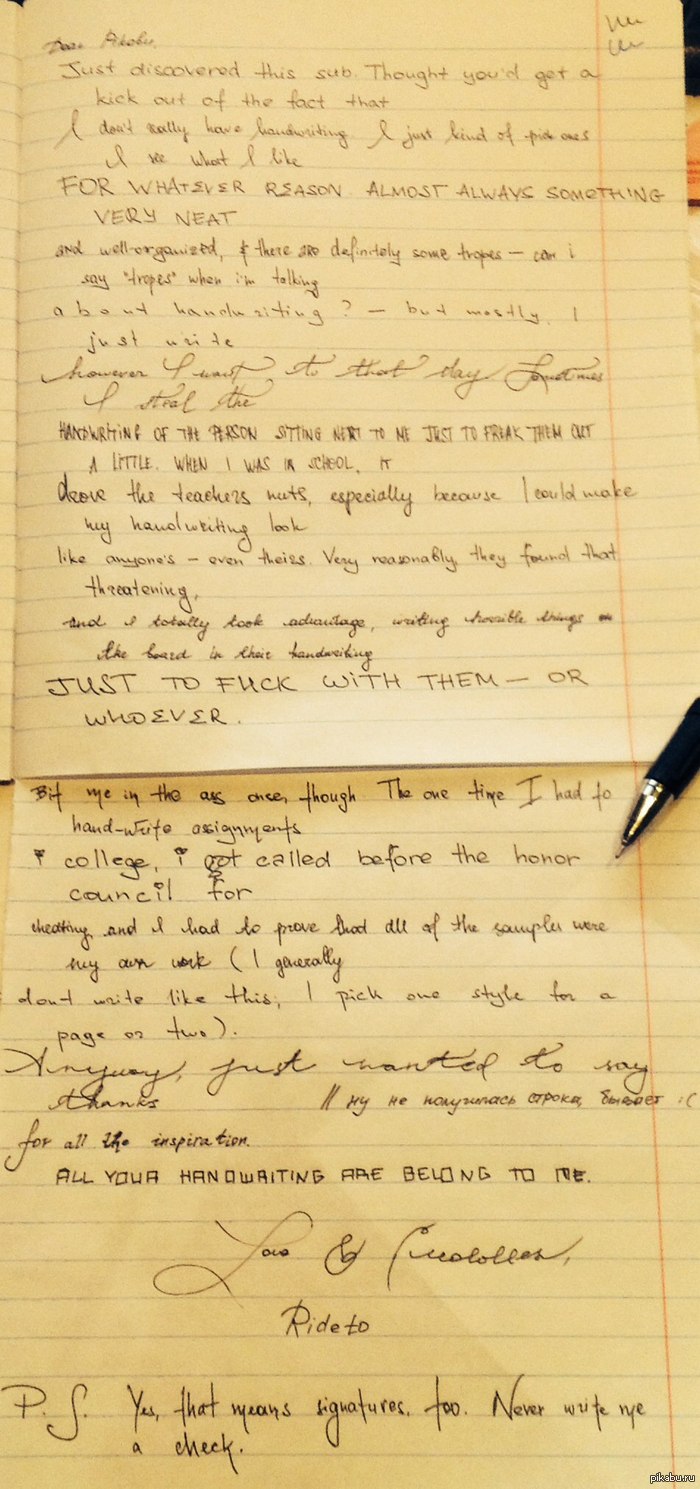 Dear Pikabu,
Just discovered this sub. Thought you'd get a
kick out of the fact that
I don't really have handwriting I just kind of pick ones
I see what I like
FOR WHATEVER REASON ALMOST ALWAYS SOMETHING
VERY NEAT
and well-organized, & there are definitely some tropes – can i
say "tropes" when i'm talking
about handwriting? – but mostly, I
just write
however I want to that day Sometimes
I steal the
HANDWRITING OF THE PERSON SITTING NEXT TO ME JUST TO FREAK THEM OUT
A LITTLE. WHEN I WAS IN SCHOOL, IT
drove the teachers nuts, especially because I could make
my handwriting look
like anyone's – even theirs. Very reasonably, they found that
threatening,
and I totally took advantage, writing horrible things on
the board in their handwriting
JUST TO FUCK WITH THEM – OR
WHOEVER.
Bit me in the ass once, though The one time I had to
hand-write assignments
i college, i got called before the honor
council for
cheating and I had to prove that all of the samples were
my own work (I generally
don't write like this, I pick one style for a
page or two).
Anyway, just wanted to say
thanks // ну не получилась строка, бывает :(
for all the inspiration.
ALL YOUR HANDWRITING ARE BELONG TO ME.
Love &
Rideto
P.S. Yes, that means signatures, too. Never write me
a check.
pikabu.ru